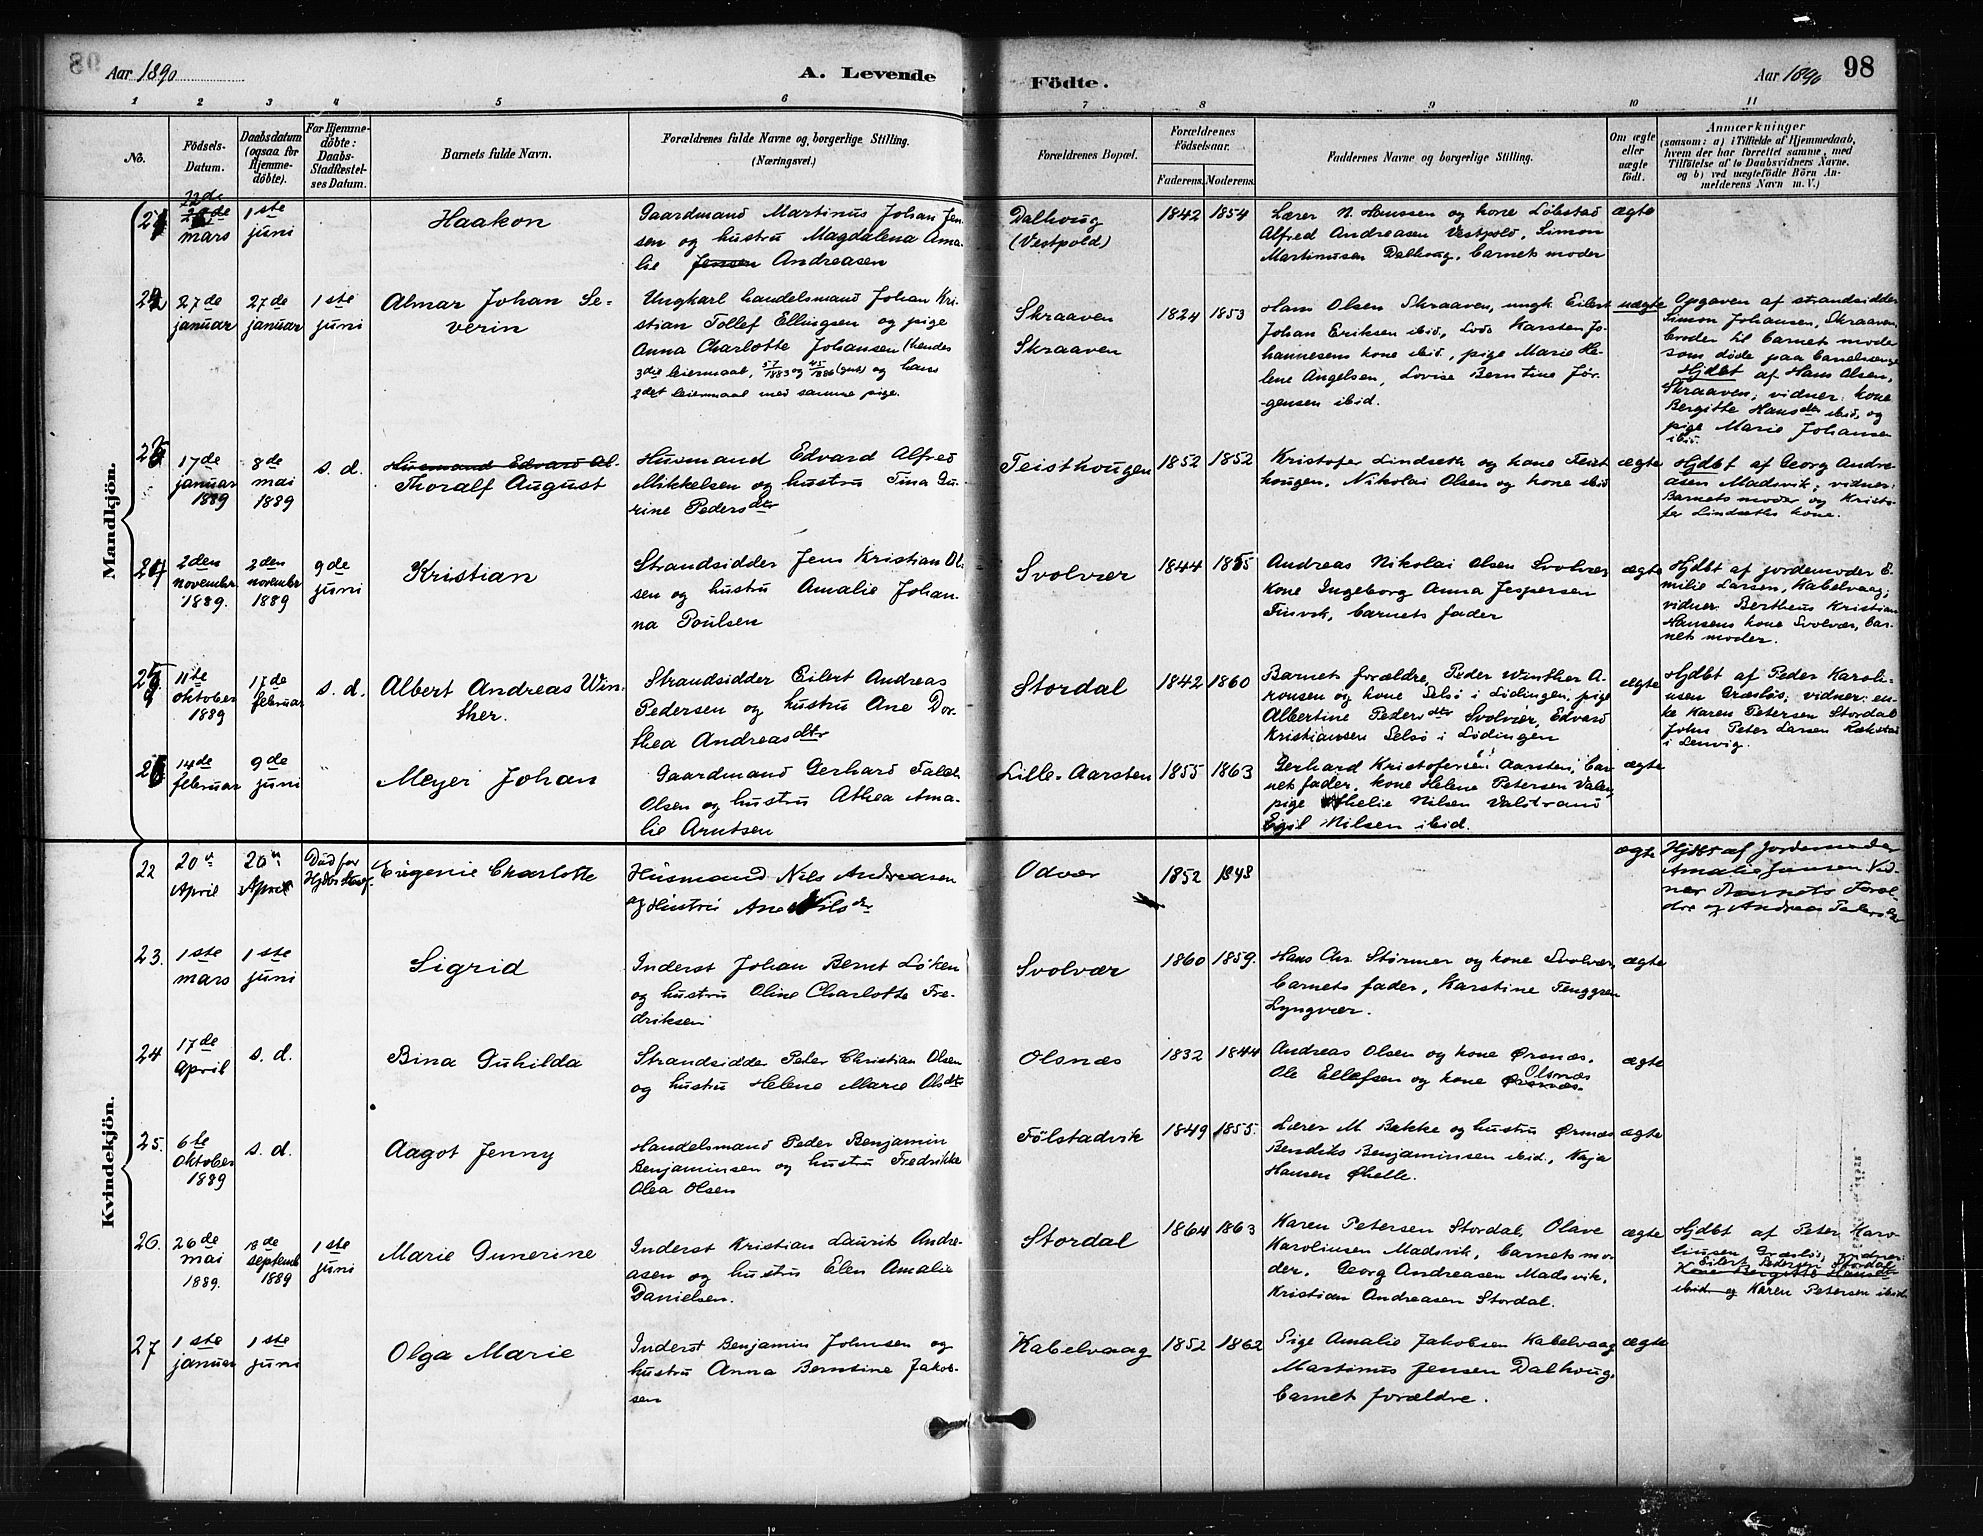 Aar 1890
A. Levende
Födte.
Aar 1890
98
1 2 3 4 5 6 7 8 9 10 11
No.
Födsels-
Datum.
Daabsdatum
(ogsaa for
Hjemme-
döbte).
For Hjemme-
döbte:
Daabs-
Stadfæstel-
ses Datum.
Barnets fulde Navn.
Forældrenes fulde Navne og borgerlige Stilling.
(Næringsvei.)
Forældrenes Bopæl.
Forældrenes
Födselsaar.
Faderens. Moderens.
Faddernes Navne og borgerlige Stilling.
Om ægte
eller
uægte
født.
Anmærkninger
(saasom: a) i Tilfælde af Hjemmedaab,
hvem der har forrettet samme, med
Tilföielse af to Daabsvidners Navne.
og b) ved uægtefödte Börn An-
melderens Navn m. V.)
Mandkjön.
22de
mars
1ste
juni
Haakon
Gaardmand Martinus Johan Jen-
sen og hustru Magdalena Ama-
lie Jensen Andreasen
Dalhoug
(Vestpold)
1842 1854
Lærer N. Hanssen og kone Løbstad
Alfred Andreasen Vestpold, Simon
Martinusen Dalhoug, barnets moder
ægte
27de
januar
27de
januar
1ste
juni
Almar Johan Se-
verin
Ungkarl handelsmand Johan Kri-
stian Tollef Ellingsen og pige
Anna Charlotte Johansen (hendes
3die leiermaal, og hans
2det leiermaal med samme pige.
Skraaven
Skraaven
1824 1853
Hans Olsen Skraaven, ungk. Eilert
Johan Eriksen ibid, Lods Karsten Jo-
hannesens kone ibid, pige Marie He-
lene Angelsen, Lovise Berntine Jør-
gensen ibid.
uægte
Opgaven af strandsidder
Simon Johansen, Skraaven,
broder til barnets moder
som døde paa barselsenge
Hjdbt af Hans Olsen,
Skraaven; vidner: kone
Bergitte Hansdtr ibid, og
pige Marie Johansen
ibid.
17de
januar
1889
8de
mai
1889
s. d.
Husmand Edvard Al-
Thoralf August
Husmand Edvard Alfred
Mikkelsen og hustru Tina Gu-
rine Pedersdtr
Teisthougen
1852 1852
Kristofer Lindseth og kone Teist
hougen, Nikolai Olsen og kone ibid
ægte
Hjdbt af Georg Andre-
asen Madsvik; vidner:
Barnets moder og Kristo-
fer Lindseths kone.
2den
november
1889.
2den
november
1889
9de
juni
Kristian
Strandsidder Jens Kristian Ol-
sen og hustru Amalie Johan-
na Poulsen
Svolvær
1844 1855
Andreas Nikolai Olsen Svolvær
kone Ingeborg Anna Jespersen
Finvik, barnets fader
ægte
Hjdbt af jordemoder E-
milie Larsen, Kabelvaag;
vidner: Bertheus Kristian
Hansens kone Svolvær, bar-
nets moder.
11te
oktober
1889
17de
februar
s. d.
Albert Andreas Win-
ther.
Strandsidder Eilert Andreas
Pedersen og hustru Ane Dor-
thea Andreasdtr
Stordal
1842 1860
Barnet forældre, Peder Winther A-
ronsen og kone Selsø i Lødingen, pige
Albertine Pedersdtr Svolvær, Edvard
Kristiansen Selsø i Lødingen
ægte
Hjdbt af Peder Karoli-
usen Græsløs; vidner: en-
ke Karen Petersen Stordal
John Peter Larsen
i Lenvig.
14de
februar
9de
juni
Meyer Johan
Gaardmand Gerhard Falch
Olsen og hustru Athea Ama-
lie Arntsen
Lille-Aarsten
1855 1863
Gerhard Kristofersen Aarsten, bar-
net fader, kone Helene Petersen Valen,
pige Nilsen Valstrand
Egil Nilsen ibid.
ægte
Kvindekjön.
22
20de
April
20de
April
Død før
Hjdbs Stadf.
Eugenie Charlotte
Husmand Nils Andreasen
og Hustru Ane Nilsdtr
Odvær
1852 1848
ægte
Hjdbt af Jordemoder
Amalie Jensen Vid-
ner Barnets Foræl-
dre og Andreas Peders
23.
1ste
mars
1ste
juni
Sigrid
Inderst Johan Bernt Løken
og hustru Oline Charlotte Fre-
driksen
Svolvær
1860 1859.
Hans An. Størmer og kone Svolvær,
barnets fader, Karstine Tenggren
Lyngvær.
ægte
24
17de
April
s. d.
Bina Guhilda
Strandsidder Peter Christian Olsen
og hustru Helene Marie Olsdtr
Olsnæs
1832 1844
Andreas Olsen og kone Ørsnæs.
Ole Ellefsen og kone Ørsnæs. Olsnæs
ægte
25.
6te
oktober
1889
s. d.
Aagot Jenny
Handelsmand Peder Benjamin
Benjaminsen og hustru Fredrikke
Olea Olsen
Følstadvik
1849 1855.
Lærer M. Bække og hustru Ørsnæs
Bendiks Benjaminsen ibid., Kaja
Hansen Øhelle.
ægte
26.
26de
mai
1889.
18de
septemb
1889
1ste
juni
Marie Gunerine
Inderst Kristian Laurits Andre-
asen og hustru Elen Amalie
Danielsen.
Stordal
1864 1863
Karen Petersen Stordal, Olave
Karoliusen Madsvik, barnets mo-
der, Georg Andreasen Madsvik,
Kristian Andreasen Stordal.
ægte
Hjdbt af Peter Karo-
liusen Græsløs; vidner:
Eilert Petersen Stordal
Kone Bergitte Hansdtr
ibid og Karen Petersen ibid.
27
1ste
januar
1ste
juni
Olga Marie
Inderst Benjamin Johnsen og
hustru Anna Berntine Jakob-
sen
Kabelvaag
1852 1862
Pige Amalie Jakobsen Kabelvaag
Martinus Jensen Dalhoug,
barnet forældre.
ægte